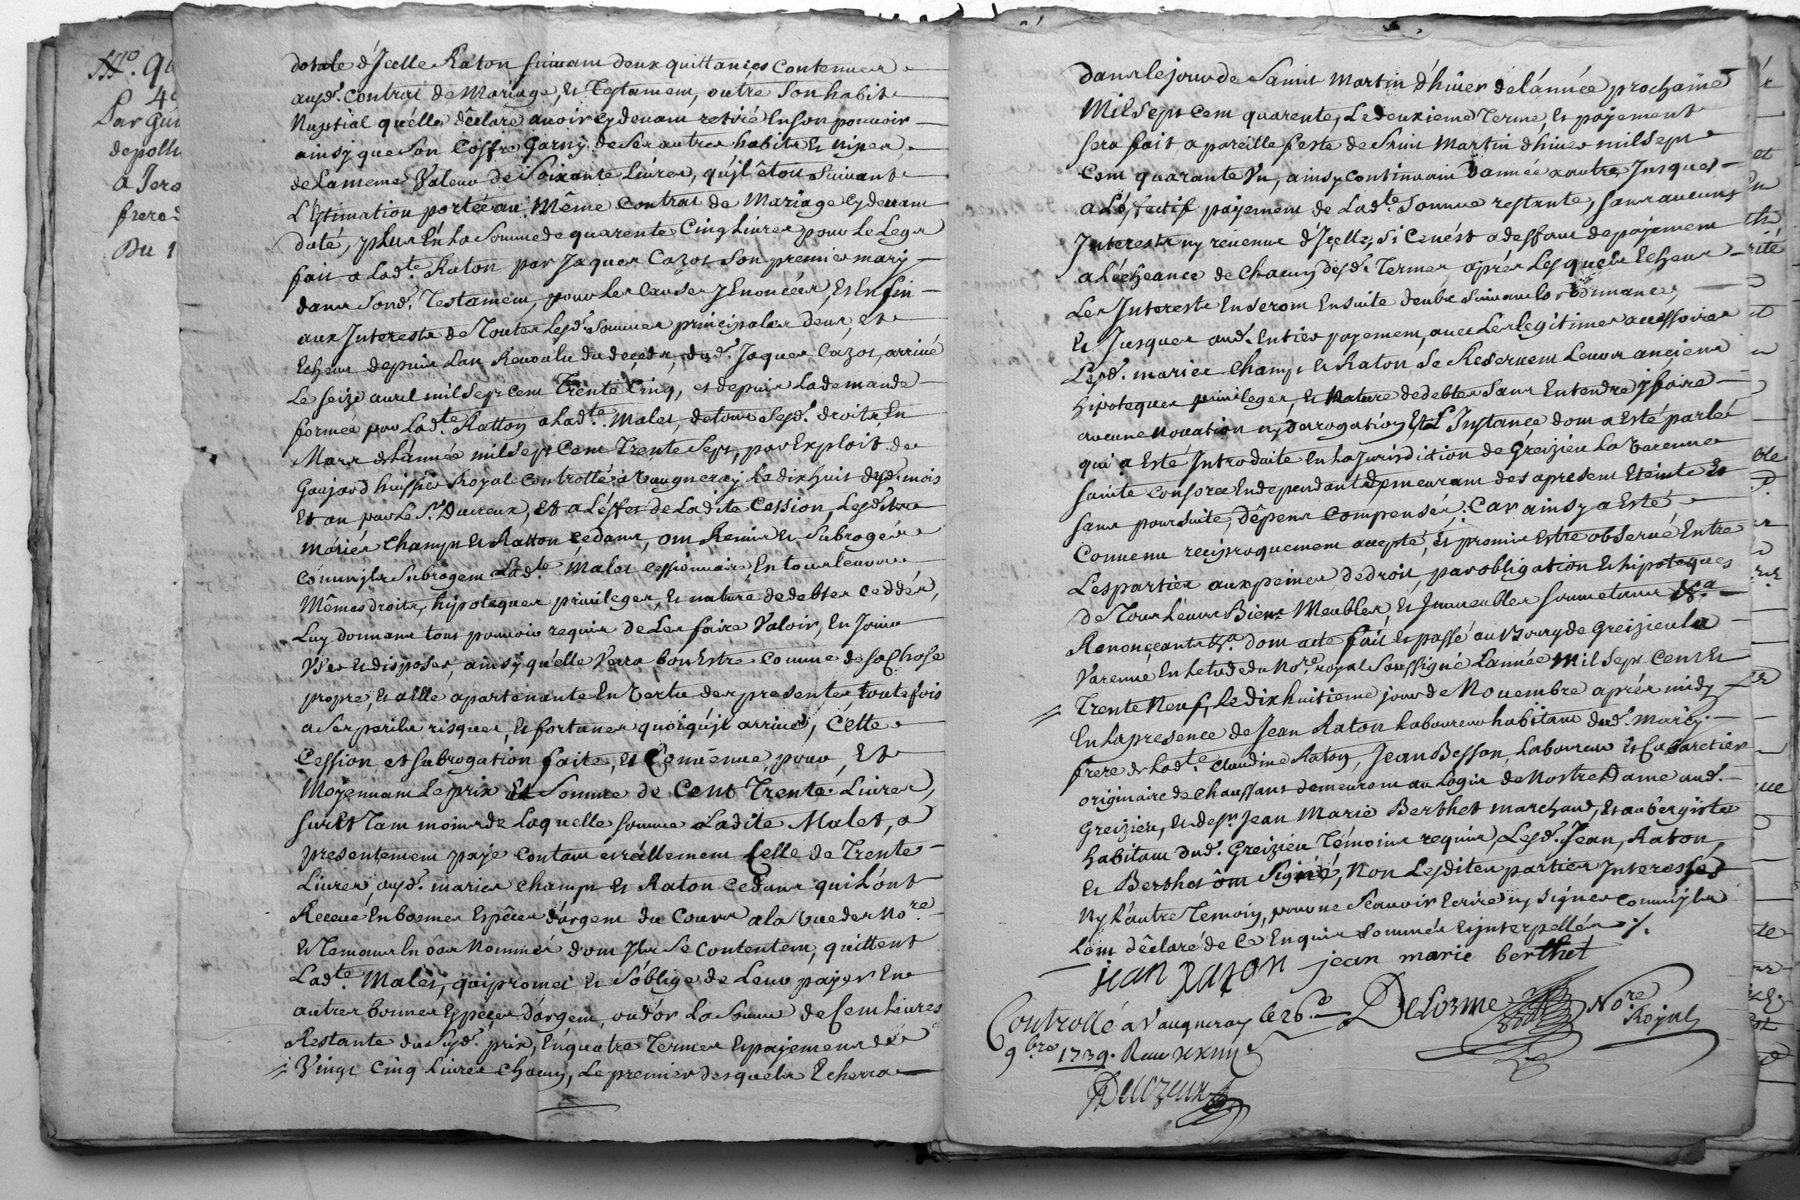 No. 9
49
Par
depoll
a Jero
frere
Du 1
dotale d'Jcelle Raton suivant deux quittances contenues
ausd. contrat de Mariage, et Testament, outre son habit
Nuptial qu'elle déclare avoir cydevant retiré En son pouvoir
ainsy que son Coffre garny de ses autres habits et nipes,
de la meme Valeur de soixante Livres, qu'jl êtoit suivant
L'Estimation portée au Même contrat de Mariage cydevant
daté, plus En La Somme de quarente Cinq Livres pour Le Legs
fait a Ladte. Raton par Jaques Cazot son premier mary
dans sond. Testament, pour Les Causes y Enoncées, Et Enfin
aux Jnterests de Toutes Lesd. sommes principales deus, Et
Echeus depuis L'an Revoulu du decedx dud. Jaques Cazot, arrivé
Le seize avril mil sept cent Trente Cinq, et depuis La demande
formée par Ladte. Ratton a Ladte. Malet, de tous Sesd. droits En
Mars de L'année mil sept Cent Trente Sept, par Exploit de
Goujard huissier Royal Controllé a Vaugneray Le dix huit dud. mois
Et an par Le Sr. Ducreux, Et a L'effet de Ladite Cession, Lesdits
Mariés Champt Et Ratton cedans, ont Remis Et Subrogés
Comm'jls Subrogent Ladte. Malet cessionnaire En tous leurs
Mêmes droits, hipoteques privileges, Et nature de debtes ceddés,
Luy donnant tous pouvoir requis de Les faire Valoir, En Jouir
User Et disposer, ainsy qu'elle Verra bon Estre Comme de sa Chose
propre, Et a Elle apartenante En Vertu des presentes, toutefois
a ses perils risques, Et fortunes quoiqu'jl arrive, Cette
Cession et Subrogation faite, Et Convenue, pour, Et
Moyennant Le prix Et Somme de Cent Trente Livres,
sur Et Tant moins de Laquelle Somme Ladite Malet, a
presentement payé contant et réellement Celle de Trente
Livres ausd. mariés champt Et Raton cedans qui L'ont
Receue En bonnes Espêces d'argent du Cours a la Vue des Nore.
Et Temoins En bas Nommés dont Jls Se Contentent, quittent
Ladte. Malet, qui promet Et s'oblige de Leur payer En
autres bonnes Espêces d'argent, ou d'or La Somme de Cent Livres
Restante du Susd. prix, En quatre Termes Et payemens de
Vingt Cinq Livres Chacun, Le premier desquels Echerra
dans le jour de Saint Martin d'hiver de L'année prochaine
Mil Sept Cent quarente, Le deuxieme Terme Et payement
sera fait a pareille feste de Saint Martin d'hiver mil Sept
Cent quarante Un, ainsy continuant d'année a autre Jusques
a L'effectif payement de Ladte. Somme restante, sans aucuns
Jnterests ny revenus d'Jcelle, Si Ce n'est a deffaut de payement
a L'écheance de Chacun desd. Termes aprés Lesquels Echeus
Les Jnterests En seront En suite deubs Suivant L'ordonnance,
Et Jusques aud. Entier payement, avec Les legitimes accessoires
Lesd. mariés champt et Raton Se Reservent Leurs anciens
hipoteques privileges, Et Nature de debtes Sans Entendre y faire
aucune Novation ny derrogation, Et L'Jnstance dont a Esté parlé
qui a Esté Jntroduite En La Jurisdiction de Greizieu La Varenne
sans poursuite, dêpens compensés, Car ainsy a Esté
Convenu reciproquement accepté, Et promis Estre observé Entre
Les parties aux peines de droit, par obligation Et hipoteques
de Tous Leurs Biens Meubles, Et Jmmeubles soumetans &a
Renonçeants &a. dont acte fait et passé au Bourg de Greizieu la
Varenne En L'etude du Nore. royal Soussigné L'année Mil Sept Cent Et
Trente Neuf, Le dix huitieme jour de Novembre aprés midy
En La presence de Jean Raton Laboureur habitant dud.
frere de Ladte. Claudine Raton, Jean Besson, Laboureur Et Cabaretier
originaire de Chaussans demeurant au Logis de Nostre Dame aud.
Greizieu, Et de Sr. Jean Marie Berthet marchand, Et aubergiste
habitant dud. Greizieu Témoins requis, Lesd. Jean, Raton,
Et Berthet ont Signé, Non Lesdites parties Jnteressées
Ny L'autre Temoin, pour ne Scavoir Ecrire ny Signer comm'jls
L'ont dêclaré de Ce Enquis Sommés Et jnterpellés ./.
jean raton jean marie berthet
Delorme Nore. Royal
Controllé a Vaugneray le 26.
9bre 1739.